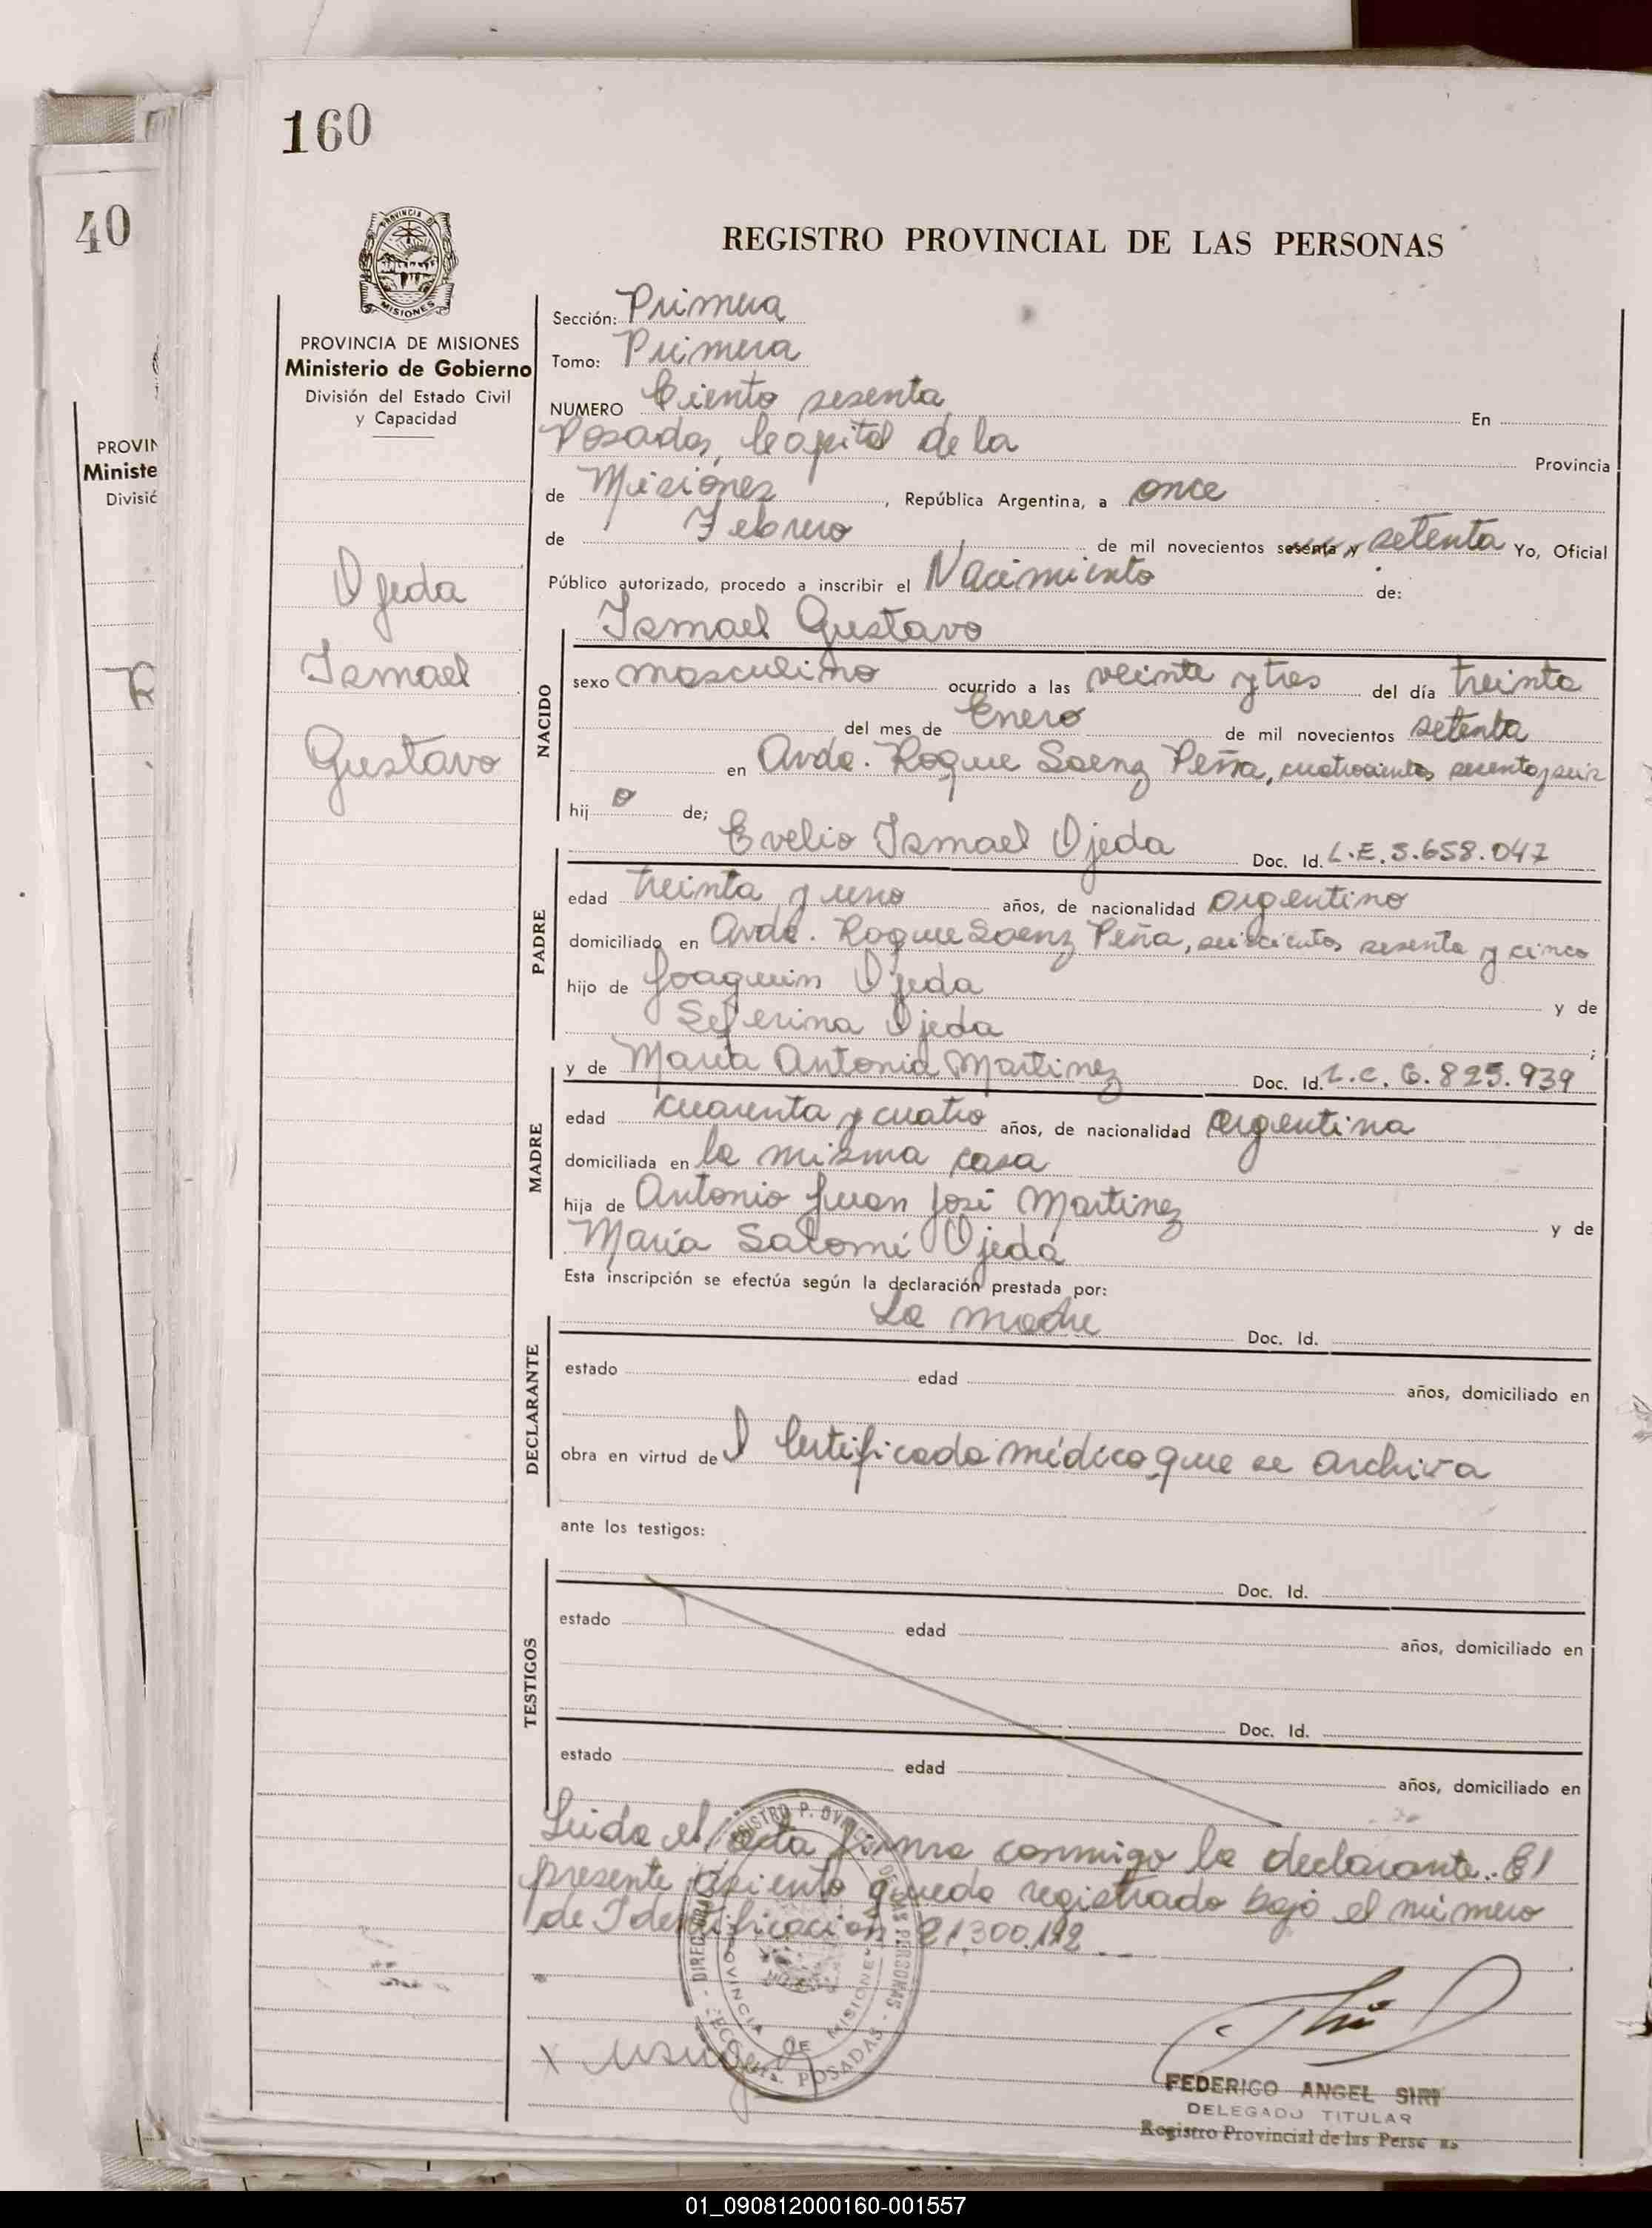 160
40
REGISTRO PROVINCIAL DE LAS PERSONAS
PROVINCIA DE MISIONES
Ministerio de Gobierno
División del Estado Civil
y Capacidad
PROVIN
Ministe
Divisió
Ojeda
Ismael
Gustavo
Sección: Primera
Tomo: Primera
NUMERO Ciento sesenta En
Posadas, Capital de la Provincia
de Misiones, República Argentina, a once
de Febrero de mil novecientos sesenta y setenta Yo, Oficial
Público autorizado, procedo a inscribir el Nacimiento de:
Ismael Gustavo
NACIDO
sexo masculino ocurrido a las veinte y tres del día treinta
del mes de Enero de mil novecientos setenta
en Avda. Roque Saenz Peña, cuatrocientos sesenta y seis
hijo de;
PADRE
Evelio Ismael Ojeda Doc. Id. L.E. 5.658.047
edad treinta y uno años, de nacionalidad argentino
domiciliado en Avda. Roque Saenz Peña, seiscientos sesenta y cinco
hijo de Joaquin Ojeda y de
Seferina Ojeda;
MADRE
y de María Antonia Martinez Doc. Id. L.C. 6.825.939
edad cuarenta y cuatro años, de nacionalidad argentina
domiciliada en la misma casa
hija de Antonio Juan José Martinez y de
María Salomé Ojeda
Esta inscripción se efectúa según la declaración prestada por:
DECLARANTE
La madre Doc. Id.
estado edad años, domiciliado en
obra en virtud del Certificado médico que se archiva
ante los testigos:
TESTIGOS
Doc. Id.
estado edad años, domiciliado en
Doc. Id.
estado edad años, domiciliado en
Leida el acta firma conmigo la declarante. El
presente asiento queda registrado bajo el número
de Identificación 21.300.112
FEDERICO ANGEL SIRI
DELEGADO TITULAR
Registro Provincial de las Perso as
01_090812000160-001557